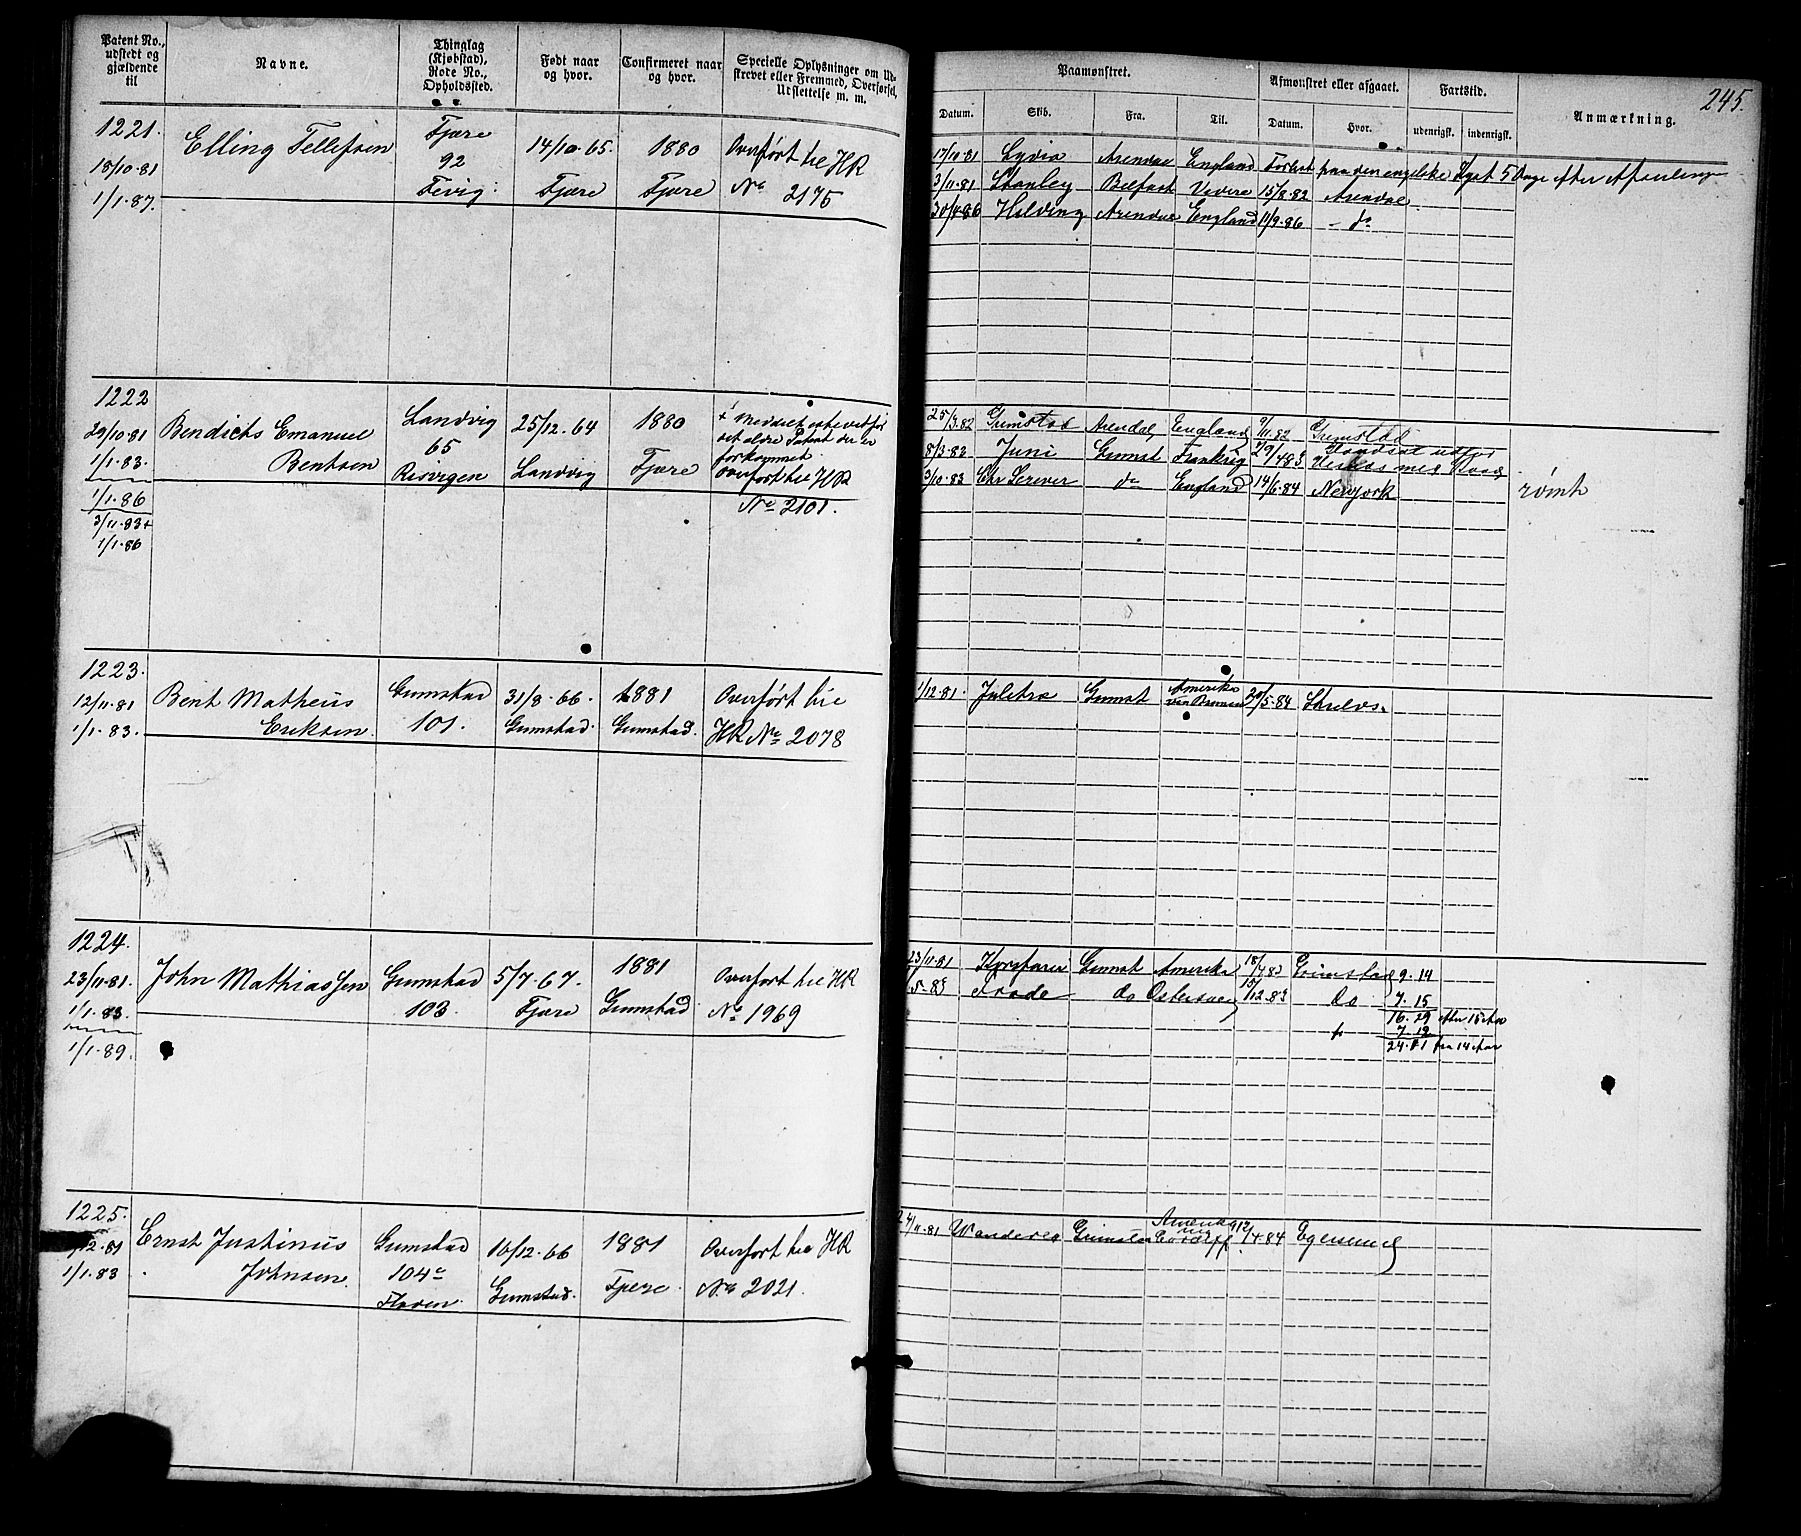 Patent No., udstedt og gjældende til
Navne.
Thinglag (Kjøbstad), Rode No., Opholdssted.
Født naar og hvor.
Confirmeret naar og hvor.
Specielle Oplysninger om Udskrevet eller Fremmed, Overførsel, Udslettelse m. m.
Paamønstret.
Afmønstret eller afgaaet.
Fartstid.
Anmærkning.
245.
Datum. Skib. Fra. Til. Datum. Hvor. udenrigsk. indenrigsk.
1221.
18/10-81
1/1-87.
Elling Tellefsen
Fjære
92
Fevig.
14/10-65.
Fjære
1880
Fjære
Overført til HR
No 2175
17/10-81 Lydia Arendal England Forlist paa den engelske Kyst 5 Dage efter Afseilingen
3/11-81 Stanley Belfast 15/8-82 Arendal
30/4-86 Hilding Arendal England 11/9-86 - do
1222
29/10-81
1/1-83.
1/1-86
3/11-83+
1/1-86
Bendicts Emanuel
Bentsen
Landvig
65
Resvigen
25/12-64
Landvig
1880
Fjære
det ældre Patent der er
forkommet
Overført til HR
No 2101.
25/3-82 Grimstad Arendal England 7/11-82 Grimstad
8/3-83 Juni Grimst Frankrig 29/4-83
3/10-83 Chr Scriver do England 14/6-84 Newyork
rømt
1223.
12/11-81
1/1-83.
Bent Matheus
Eriksen
Grimstad
101.
31/8-66.
Grimstad.
1881
Grimstad.
Overført til
HR No 2078
1/12-81. Juletræ Grimst Amerika via Bremen 20/5-84
1224.
23/11-81.
1/1-83.
1/1-89.
John Mathiassen
Grimstad
103
5/7-67.
Fjære
1881
Grimstad
Overført til HR
No 1969
23/11-81 Korsfarer Grimst Amerika 18/7-83 Grimstad 9-14
Frode do Østersøen 15/12-83 do 7-15
16-29 efter 15 Aar
7-12
24-11 fra 14 Aar
1225.
/12-81
1/1-83
Ernst Justinus
Johnsen
Grimstad
104c
Floden.
16/12-66
Grimstad.
1881
Fjære.
Overført til HR
No 2021.
24/11-81 Wanderer Grimstad 4-84 Egersund